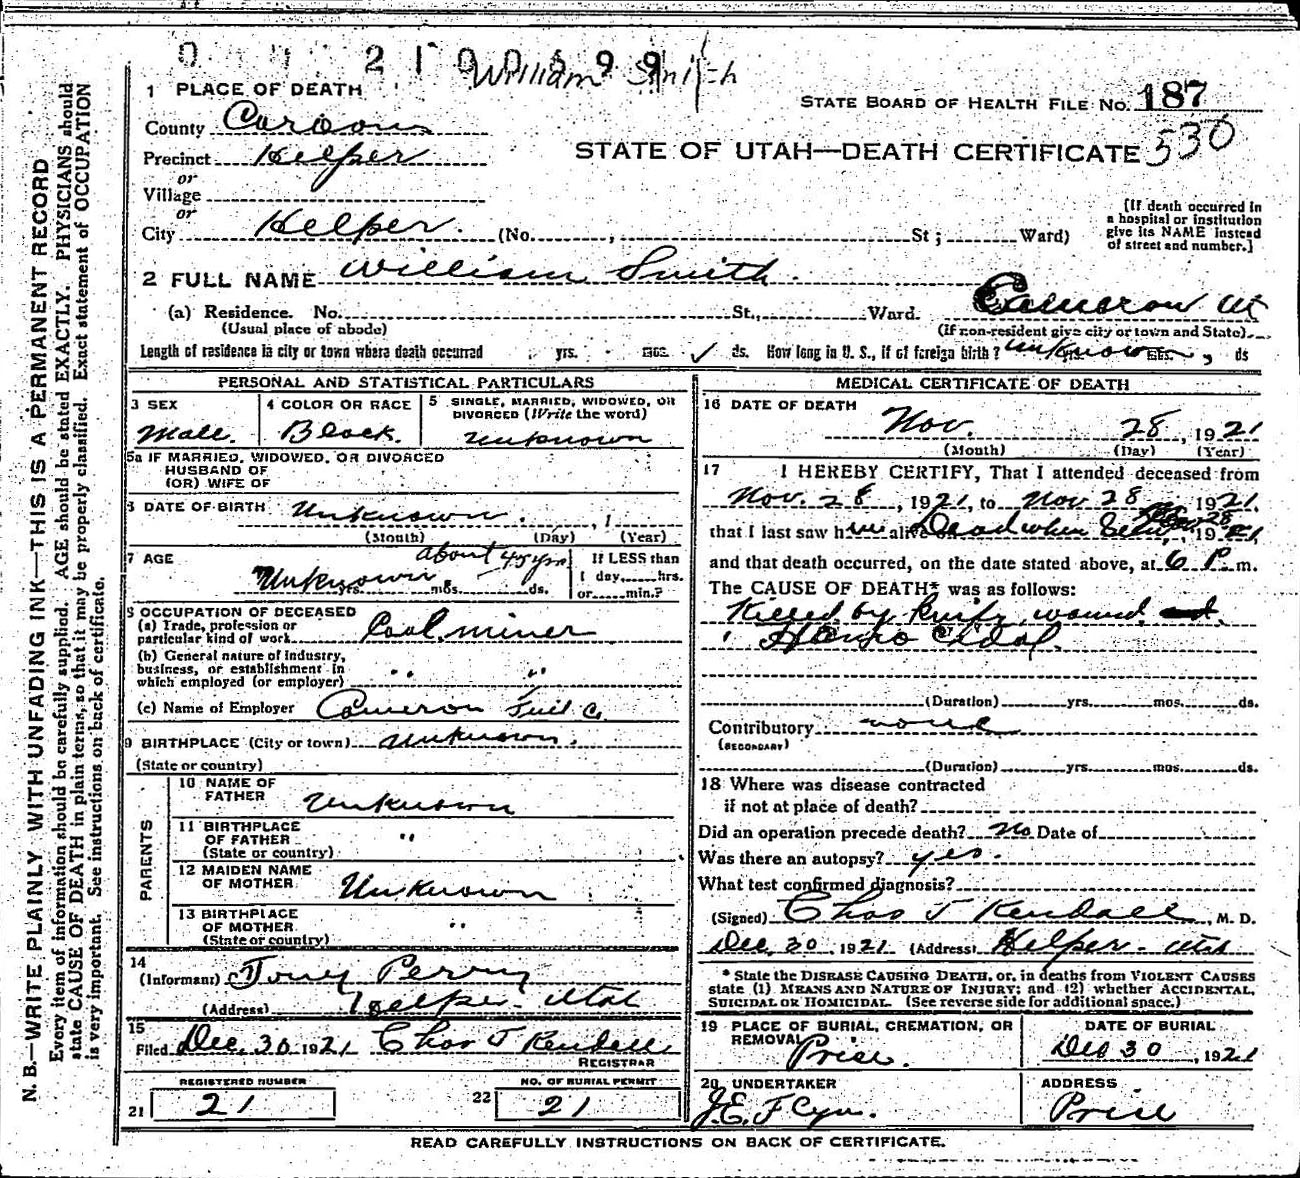 2100599
William Smith
1 PLACE OF DEATH
STATE BOARD OF HEALTH FILE No. 187
County Carbon
530
Precinct Helper
STATE OF UTAH—DEATH CERTIFICATE
or
Village
or
City Helper. (No. , St; Ward)
[If death occurred in
a hospital or institution
give its NAME instead
of street and number.]
2 FULL NAME William Smith.
(a) Residence. No. St., Ward. Cameron Ut
(Usual place of abode)
(If non-resident give city or town and State)
Length of residence in city or town where death occurred yrs. mos. ✓ ds. How long in U. S., if of foreign birth? unknown mos. , ds
PERSONAL AND STATISTICAL PARTICULARS
3 SEX
Male.
4 COLOR OR RACE
Black.
5 SINGLE, MARRIED, WIDOWED, OR
DIVORCED (Write the word)
Unknown
5a IF MARRIED, WIDOWED, OR DIVORCED
HUSBAND OF
(OR) WIFE OF
6 DATE OF BIRTH Unknown. , 1
(Month) (Day) (Year)
7 AGE about 45 yrs
Unknown. yrs. mos. ds.
If LESS than
1 day, hrs.
or min.?
8 OCCUPATION OF DECEASED
(a) Trade, profession or
particular kind of work Coal miner
(b) General nature of industry,
business, or establishment in
which employed (or employer) " "
(c) Name of Employer Cameron Fuel Co
9 BIRTHPLACE (City or town) Unknown.
(State or country)
PARENTS
10 NAME OF
FATHER Unknown
11 BIRTHPLACE
OF FATHER "
(State or country)
12 MAIDEN NAME
OF MOTHER Unknown
13 BIRTHPLACE
OF MOTHER "
(State or country)
14
(Informant) Tony Perry
(Address) Helper - Utah
15
Filed Dec. 30 1921 Chas T Kendall
REGISTRAR
REGISTERED NUMBER
21 21
NO. OF BURIAL PERMIT
22 21
MEDICAL CERTIFICATE OF DEATH
16 DATE OF DEATH
Nov. 28, 1921
(Month) (Day) (Year)
17 I HEREBY CERTIFY, That I attended deceased from
Nov. 28, 1921, to Nov 28 1921,
that I last saw him alive on Dead when Seen, Nov 28 1921,
and that death occurred, on the date stated above, at 6 P. m.
The CAUSE OF DEATH* was as follows:
Killed by knife wound
(Duration) yrs. mos. ds.
Contributory none
(SECONDARY)
(Duration) yrs. mos. ds.
18 Where was disease contracted
if not at place of death?
Did an operation precede death? No Date of
Was there an autopsy? yes.
What test confirmed diagnosis?
(Signed) Chas T Kendall, M. D.
Dec. 30, 1921 (Address) Helper - Utah
* State the DISEASE CAUSING DEATH, or, in deaths from VIOLENT CAUSES
state (1) MEANS AND NATURE OF INJURY; and (2) whether ACCIDENTAL,
SUICIDAL OR HOMICIDAL. (See reverse side for additional space.)
19 PLACE OF BURIAL, CREMATION, OR
REMOVAL Price.
DATE OF BURIAL
Dec 30, 1921
20 UNDERTAKER
J. E. Flynn.
ADDRESS
Price
READ CAREFULLY INSTRUCTIONS ON BACK OF CERTIFICATE.
N. B.—WRITE PLAINLY WITH UNFADING INK—THIS IS A PERMANENT RECORD
Every item of information should be carefully supplied. AGE should be stated EXACTLY. PHYSICIANS should
state CAUSE OF DEATH in plain terms, so that it may be properly classified. Exact statement of OCCUPATION
is very important. See instructions on back of certificate.